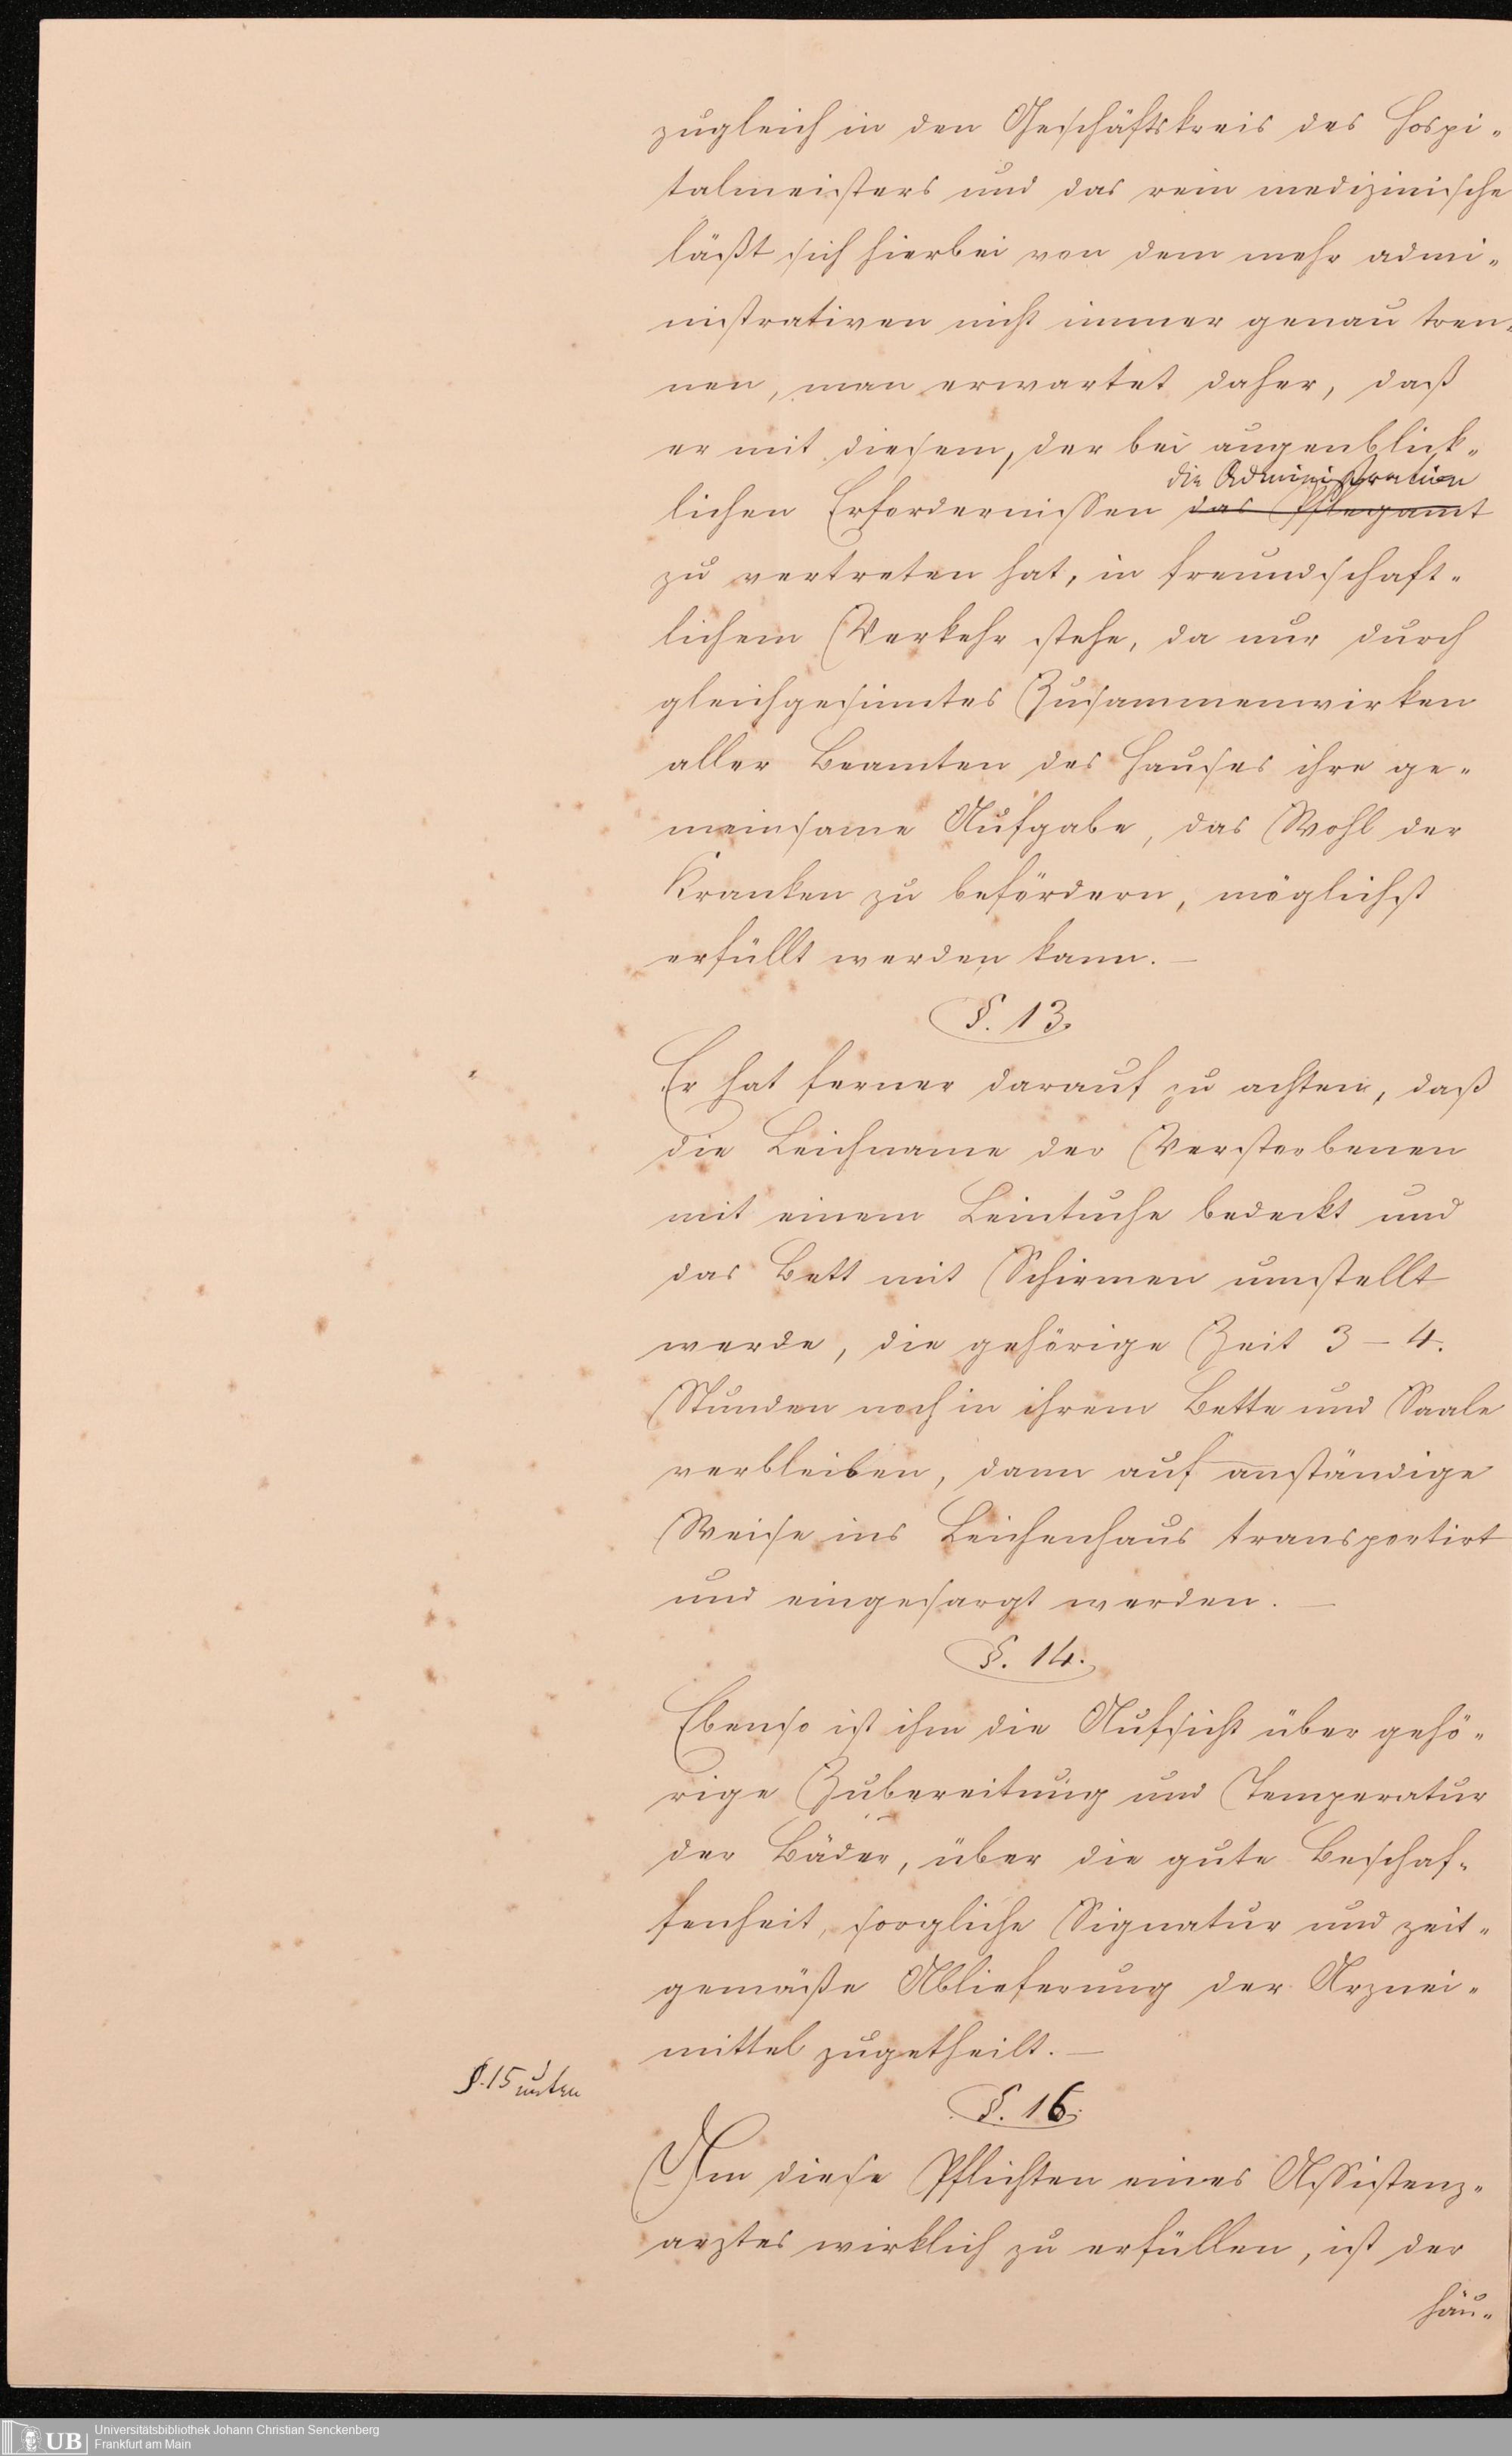 zugleich in den Geschäftskreis des Hospi-
talmeisters und das rein medizinische
läßt sich hierbei von dem mehr admi-
nistrativen nicht immer genau tren-
nen, man erwartet daher, daß
er mit diesem, der bei augenblick-
die Administration
lichen Erfordernissen das Pflegamt
zu vertreten hat, in freundschaft-
lichem Verkehr stehe, da nur durch
gleichgesinntes Zusammenwirken
aller Beamten des Hauses ihre ge-
meinsame Aufgabe, das Wohl der
Kranken zu befördern, möglichst
erfüllt werden kann. —
§. 13.
Er hat ferner darauf zu achten, daß
die Leichname der Verstorbenen
mit einem Leintuche bedeckt und
das Bett mit Schirmen umstellt
werde, die gehörige Zeit 3 – 4.
Stunden noch in ihrem Bette und Saale
verbleiben, dann auf anständige
Weise ins Leichenhaus transportirt
und eingesargt werden. —
§. 14.
Ebenso ist ihm die Aufsicht über gehö-
rige Zubereitung und Temperatur
der Bäder, über die gute Beschaf-
fenheit, sorgliche Signatur und zeit-
gemäße Ablieferung der Arznei-
mittel zugetheilt. —
§. 15 unten
§. 16.
Um diese Pflichten eines Assistenz-
arztes wirklich zu erfüllen, ist der
häu-
UB
Universitätsbibliothek Johann Christian Senckenberg
Frankfurt am Main